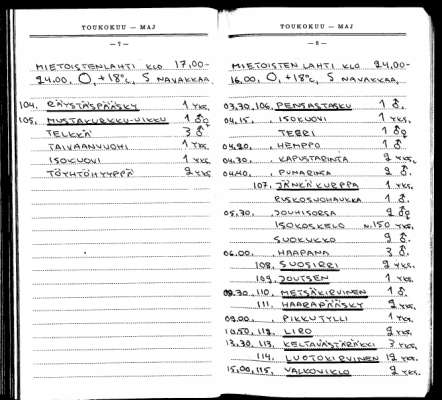 TOUKOKUU — MAJ
— 7 —
MIETOISTENLAHTI KLO 17,00-
24.00, O, +18°C, S NAVAKKAA
104. RÄYSTÄSPÄÄSKY 1 YKS.
105. MUSTAKURKKU-UIKKU 1 ♂♀
TELKKÄ 3 ♂
TAIVAANVUOHI 1 YKS.
ISOKUOVI 1 YKS.
TÖYHTÖHYYPPÄ 2 YKS.
TOUKOKUU — MAJ
— 8 —
MIETOISTEN LAHTI KLO 24,00-
16.00, O, +18°C, S NAVAKKAA,
03,30, 106. PENSASTASKU 1 ♂.
04.15, , ISOKUOVI 1 YKS.
TEERI 1 ♂♀
04.20, , HEMPPO 1 ♂.
04.30, , KAPUSTARINTA 2 YKS.
04.40, , PUNARINTA 2 ♂.
107. JÄNKÄKURPPA 1 YKS.
RUSKOSUOHAUKKA 1 ♂.
05.30, , JOUHISORSA 2 ♂♀
ISOKOSKELO n.150 YKS.
SUOKUKKO 2 ♂.
06.00, , HAAPANA 3 ♂.
108. SUOSIRRI 2 YKS.
109. JOUTSEN 1 YKS.
08.30, 110. METSÄKIRVINEN 1 ♂.
111. HAARAPÄÄSKY 2 YKS.
09.00, , PIKKUTYLLI 1 YKS.
10.50, 112. LIRO 2 YKS.
13.30, 113. KELTAVÄSTÄRÄKKI 3 YKS.
114. LUOTOKIRVINEN 12 YKS.
15.00, 115. VALKOVIKLO 2 YKS.